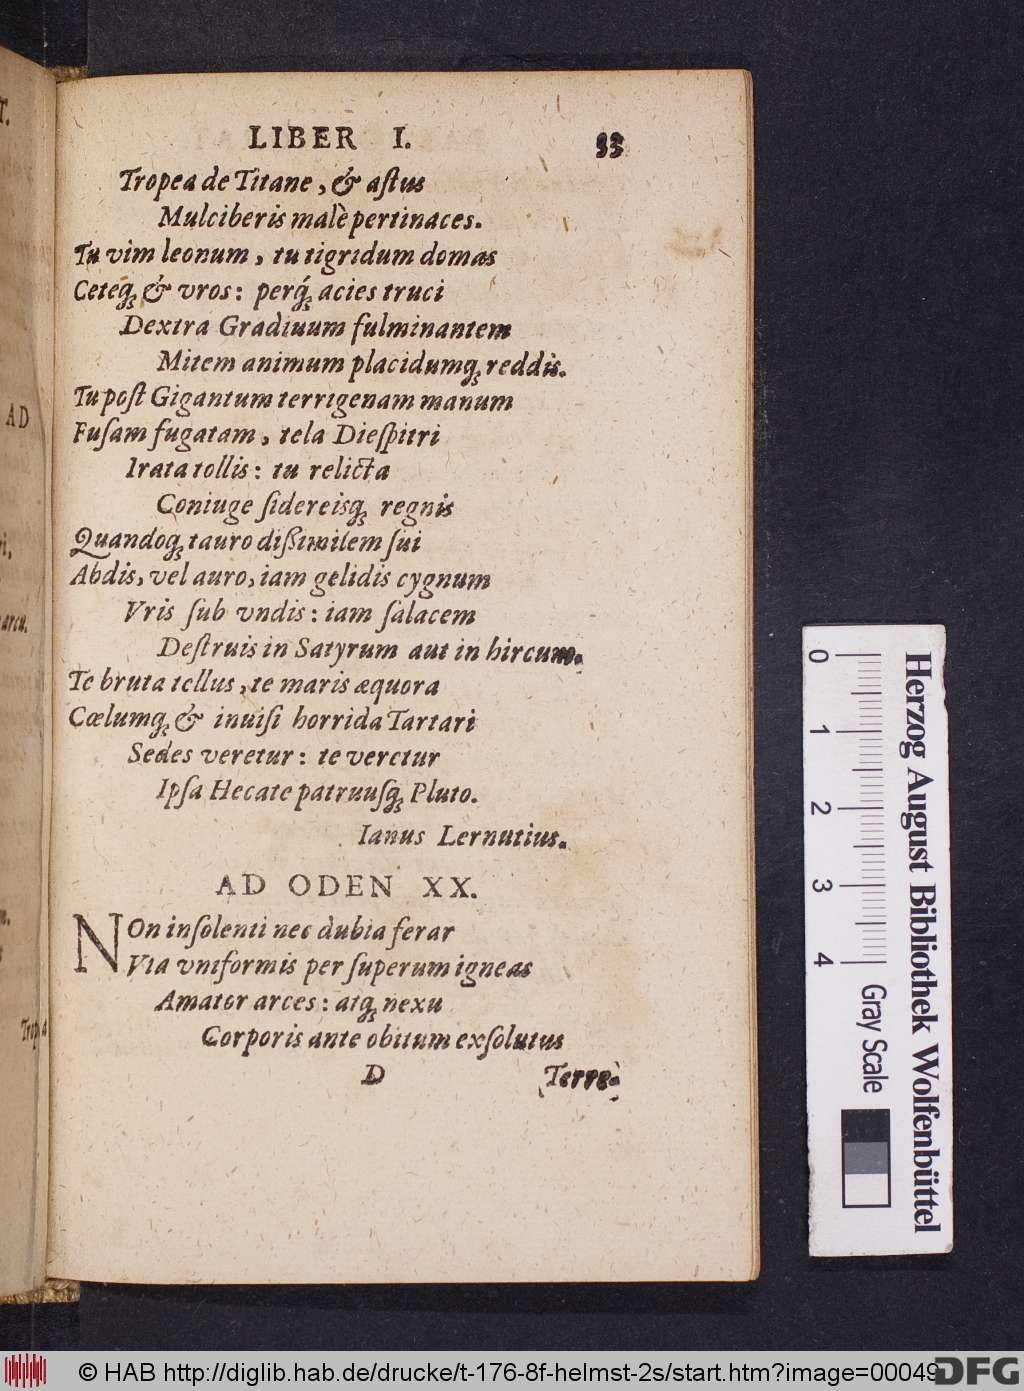 LIBER I. 33
Tropea de Titane, & astus
Mulciberis malè pertinaces.
Tu vim leonum, tu tigridum domas
Ceteq́; & vros: perq́; acies truci
Dextra Gradiuum fulminantem
Mitem animum placidumq; reddis.
Tu post Gigantum terrigenam manum
Fusam fugatam, tela Diespitri
Irata tollis: tu relicta
Coniuge sidereisq; regnis
Quandoq; tauro dißimilem sui
Abdis, vel auro, iam gelidis cygnum
Vris sub vndis: iam salacem
Destruis in Satyrum aut in hircum.
Te bruta tellus, te maris æquora
Cœlumq; & inuisi horrida Tartari
Sedes veretur: te veretur
Ipsa Hecate patruusq́; Pluto.
Ianus Lernutius.
AD ODEN XX.
NOn insolenti nec dubia ferar
Via vniformis per superum igneas
Amator arces: atq; nexu
Corporis ante obitum exsolutus
D Terre-
T.
AD
arcu.
Herzog August Bibliothek Wolfenbüttel
0 1 2 3 4 Gray Scale
© HAB http://diglib.hab.de/drucke/t-176-8f-helmst-2s/start.htm?image=00049
DFG